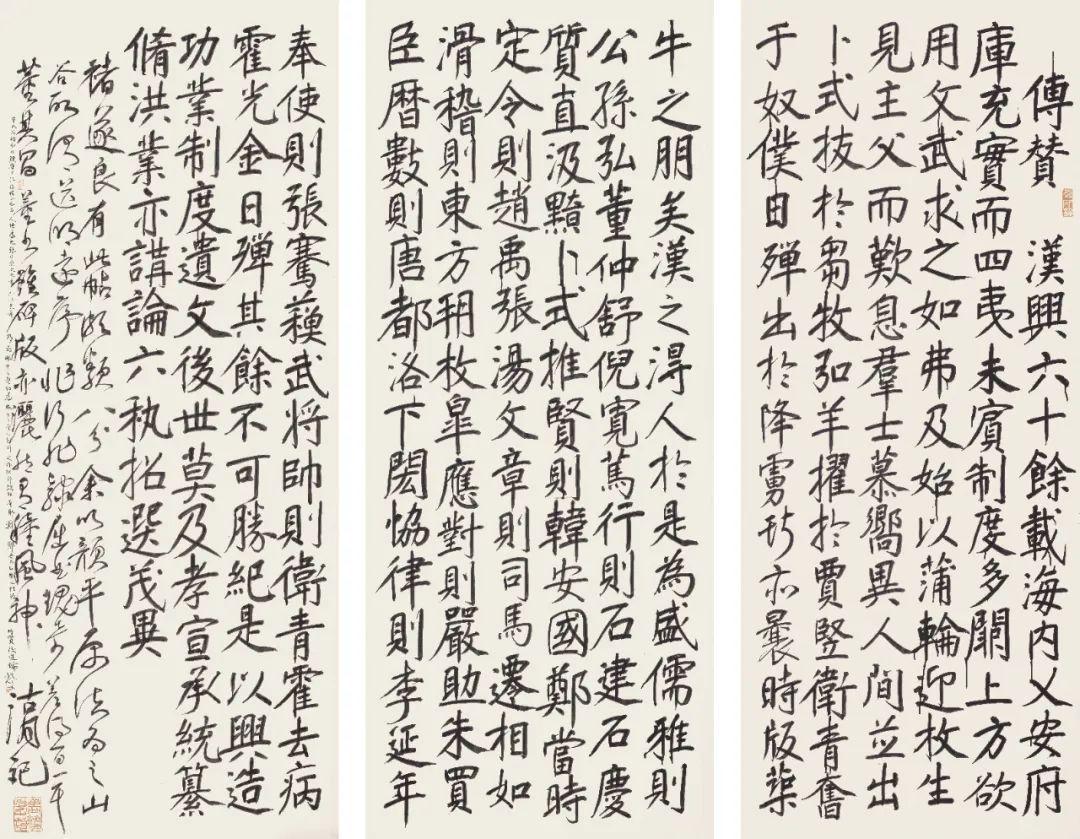 傳贊 漢興六十餘載海内乂安府
庫充實而四夷未賓制度多闕上方欲
用文武求之如弗及始以蒲輪迎枚生
見主父而歎息羣士慕嚮異人間並出
卜式拔於芻牧弘羊擢於賈竪衛青奮
于奴僕日磾出於降虜斯亦曩時版築
牛之朋矣漢之得人於是為盛儒雅則
公孫弘董仲舒倪寬篤行則石建石慶
質直汲黯卜式推賢則韓安國鄭當時
定令則趙禹張湯文章則司馬遷相如
滑稽則東方朔枚皐應對則嚴助朱買
臣曆數則唐都洛下閎恊律則李延年
奉使則張騫蘓武將帥則衛青霍去病
霍光金日磾其餘不可勝紀是以興造
功業制度遺文後世莫及孝宣承統纂
脩洪業亦講論六執招選茂異
褚遂良有此帖頗類八分余以顔平原法為之山
谷所謂送明遠序非行非隸屈曲瑰奇差得百一耳
董其昌 雖碑版亦灑 風神 記